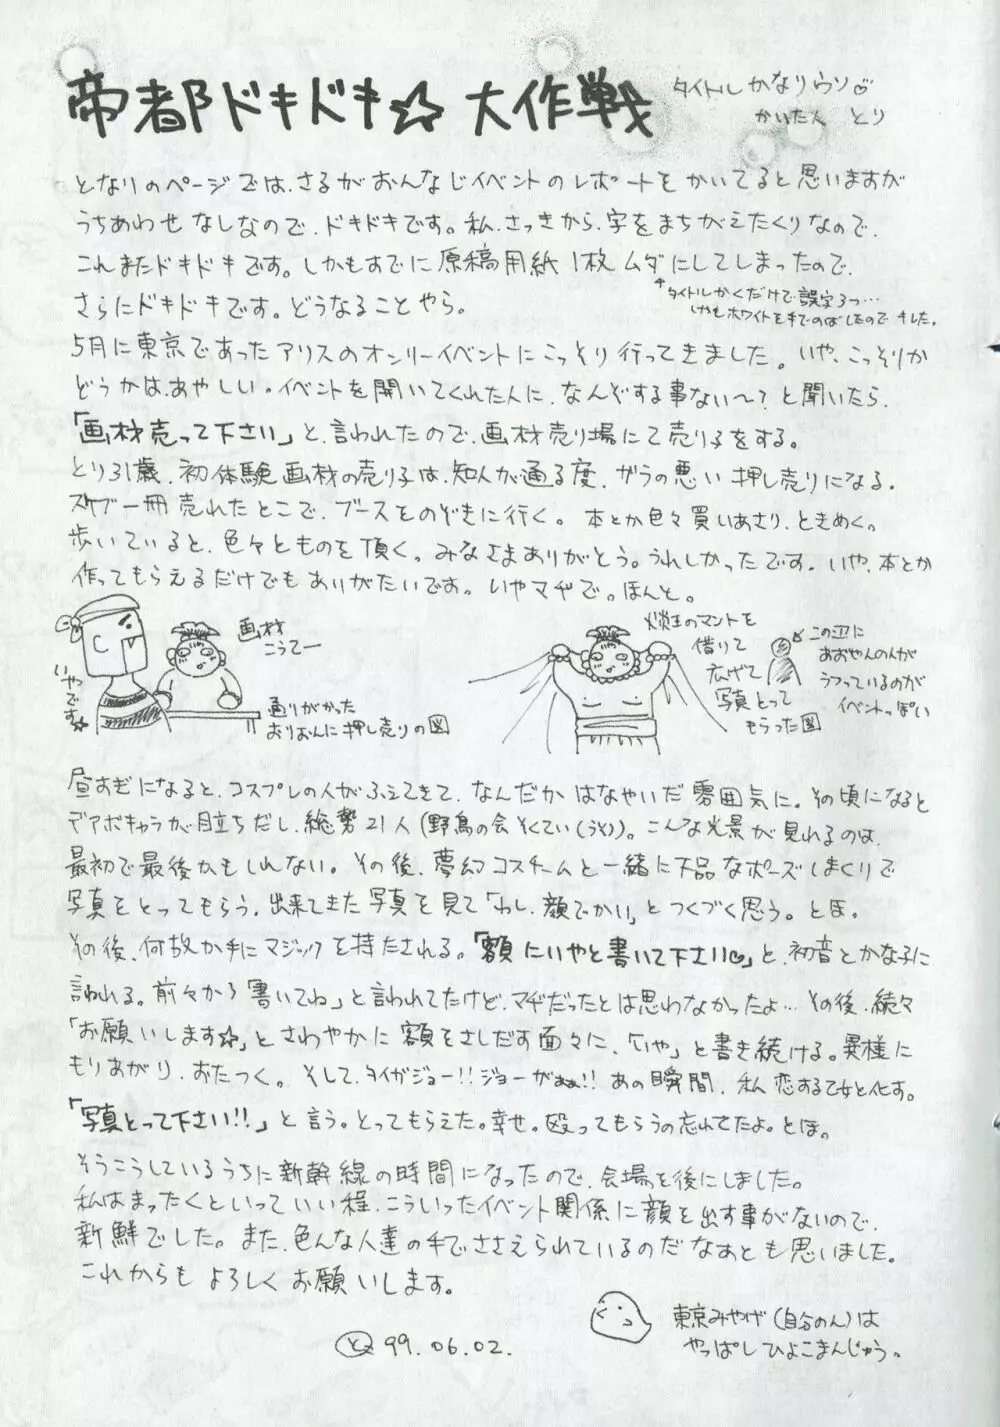 帝都ドキドキ☆大作戦
タイトルかなりウソ♡
かいた人 とり
となりのページでは、さるがおんなじイベントのレポートをかいてると思いますが
うちあわせなしなので、ドキドキです。私、さっきから、字をまちがえたくりなので、
これまたドキドキです。しかもすでに原稿用紙1枚ムダにしてしまったので、
さらにドキドキです。どうなることやら。
↑タイトルかくだけで誤字3つ…
しかもホワイトを手でのばしたのでキレた。
5月に東京であったアリスのオンリーイベントにこっそり行ってきました。いや、こっそりか
どうかは、あやしい。イベントを開いてくれた人に、なんぞする事ない〜?と聞いたら、
「画材売って下さい」と、言われたので、画材売り場にて売り子をする。
とり31歳、初体験画材の売り子は、知人が通る度、ガラの悪い押し売りになる。
スケブ一冊売れたとこで、ブースをのぞきに行く。本とか色々買いあさり、ときめく。
歩いていると、色々とものを頂く。みなさまありがとう。うれしかったです。いや、本とか
作ってもらえるだけでもありがたいです。いやマヂで。ほんと。
いやです☆
画材
こうてー
通りがかった
おりおんに押し売りの図
炎王のマントを
借りて
広げて
写真とって
もらった図
この辺に
あおやんの人が
うつっているのが
イベントっぽい
昼すぎになると、コスプレの人がふえてきて、なんだかはなやいだ雰囲気に。その頃になると
デアボキャラが目立ちだし、総勢21人(野鳥の会そくてい(うそ))。こんな光景が見れるのは、
最初で最後かもしれない。その後、夢幻コスチームと一緒に下品なポーズしまくりで
写真をとってもらう。出来てきた写真を見て「わし、顔でかい」とつくづく思う。とほ。
その後、何故か手にマジックを持たされる。「額にいやと書いて下さい♡」と、初音とかな子に
言われる。前々から「書いてね」と言われてたけど、マヂだったとは思わなかったよ…その後、続々
「お願いします☆」とさわやかに額をさしだす面々に、「いや」と書き続ける。異様に
もりあがり、おたつく。そして、タイガジョー!!ジョーがぁぁ!!あの瞬間、私恋する乙女と化す。
「写真とって下さい!!」と言う。とってもらえた。幸せ。殴ってもらうの忘れてたよ。とほ。
そうこうしているうちに新幹線の時間になったので、会場を後にしました。
私はまったくといっていい程、こういったイベント関係に顔を出す事がないので、
新鮮でした。また、色んな人達の手でささえられているのだなぁとも思いました。
これからもよろしくお願いします。
東京みやげ(自分のん)は
やっぱしひよこまんじゅう。
と 99.06.02.